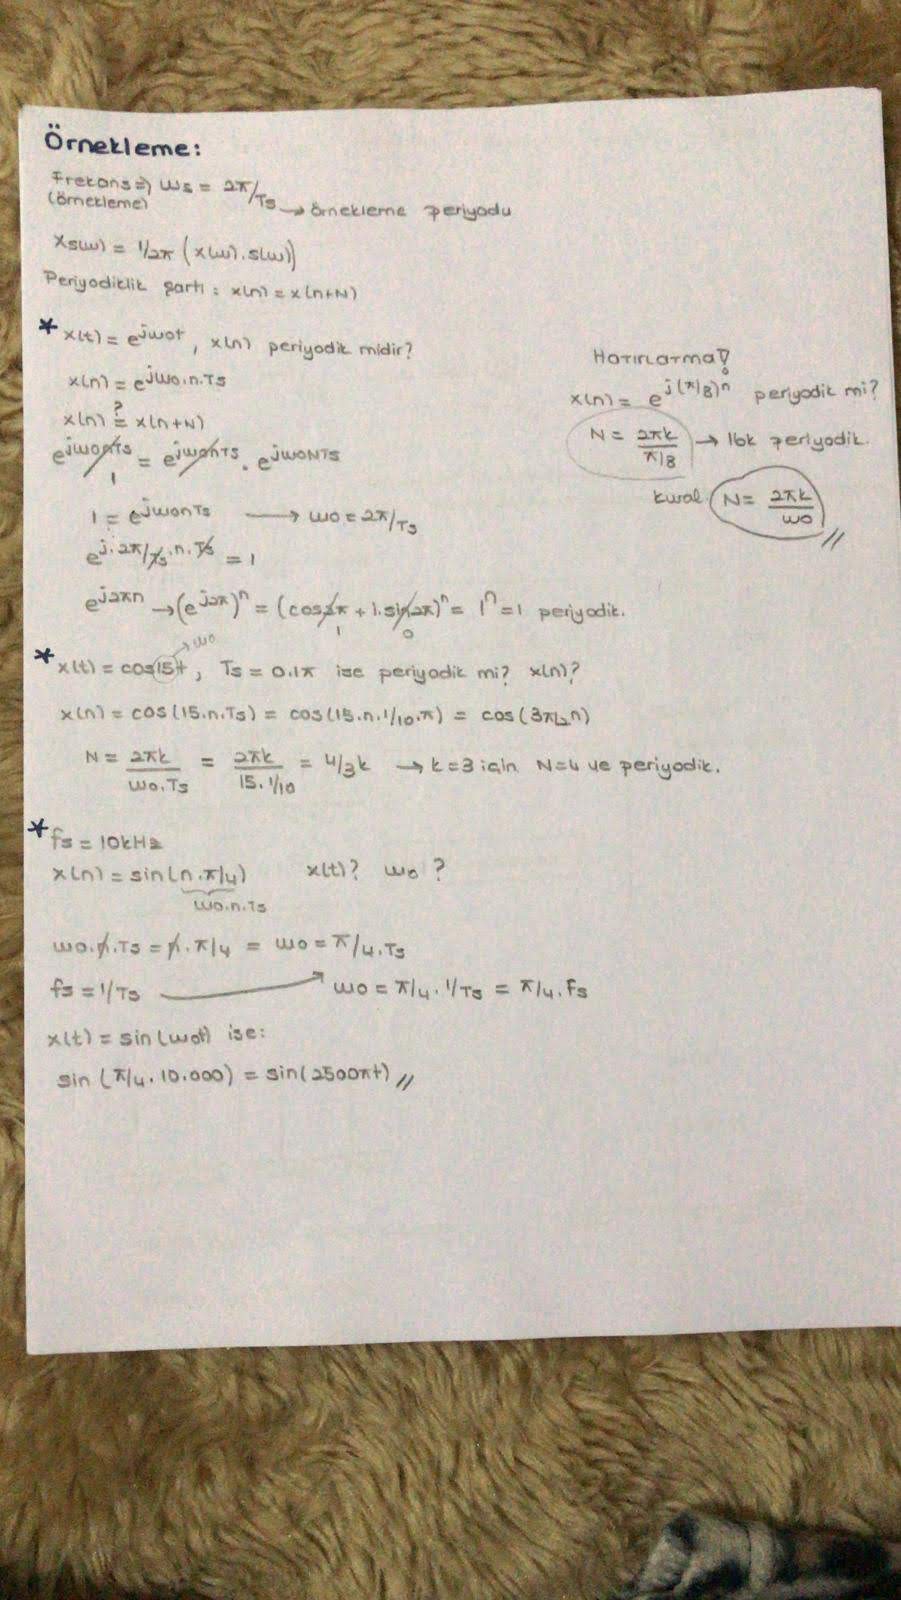 Örnekleme:
Frekans => ws = 2π/Ts → örnekleme periyodu
(örnekleme)
Xs(w) = 1/2π (x(w).s(w))
Periyodiklik şartı : x(n) = x(n+N)
* x(t) = e^jwot , x(n) periyodik midir?
x(n) = e^jwo.n.Ts
x(n) ?= x(n+N)
e^jwonTs = e^jwonTs . e^jwoNTs
1
1 = e^jwonTs → wo = 2π/Ts
e^j.2π/Ts.n.Ts = 1
e^j2πn → (e^j2π)^n = (cos2π + j.sin2π)^n = 1^n = 1 periyodik.
1 0
Hatırlatma!
x(n) = e^j(π/8)n periyodik mi?
N = 2πk/π/8 → 16k periyodik.
kural N = 2πk/wo //
→ wo
* x(t) = cos15t , Ts = 0.1π ise periyodik mi? x(n)?
x(n) = cos(15.n.Ts) = cos(15.n.1/10.π) = cos(3π/2n)
N = 2πk/wo.Ts = 2πk/15.1/10 = 4/3k → k=3 için N=4 ve periyodik.
* fs = 10kHz
x(n) = sin(n.π/4) x(t)? wo ?
wo.n.Ts
wo.n.Ts = n.π/4 = wo = π/4.Ts
fs = 1/Ts → wo = π/4.1/Ts = π/4.fs
x(t) = sin(wot) ise:
sin (π/4.10.000) = sin(2500πt) //